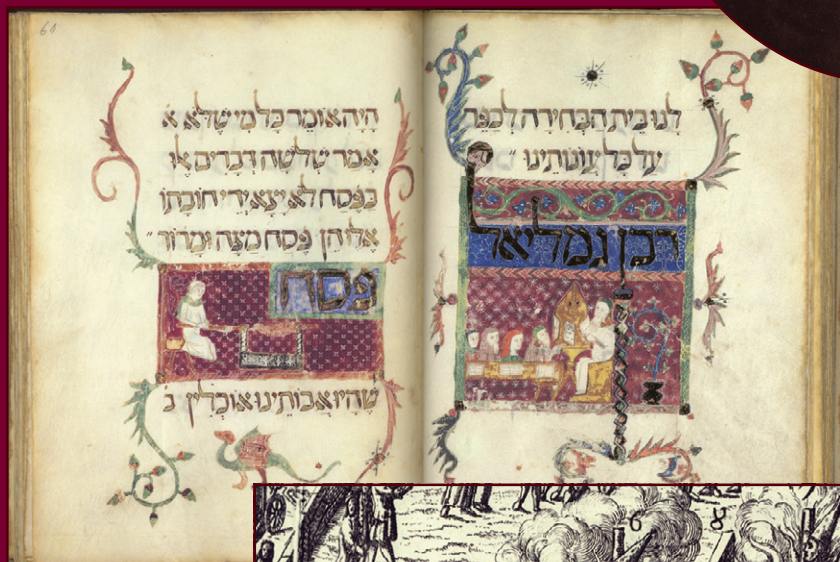 לנו בית הבחירה לכפר
על כל עונותינו
רבן גמליאל
61
היה אומר כל מי שלא א
אמר שלשה דברים אלו
בפסח לא יצא ידי חובתו
אלו הן פסח מצה ומרור
פסח
שהיו אבותינו אוכלין ב
6 8